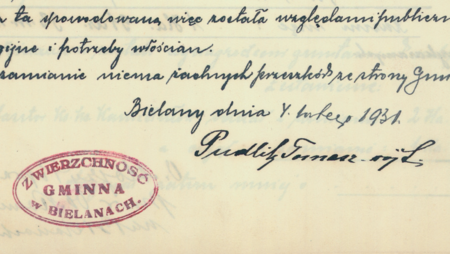 ta spowodowana więc została względami publicz
i potrzeby włościan.
zamianie niema żadnych przeszkód ze strony Gmi
Bielany dnia 4 lutego 1931.
Pudlik Tomasz wójt.
ZWIERZCHNOŚĆ
GMINNA
w BIELANACH.